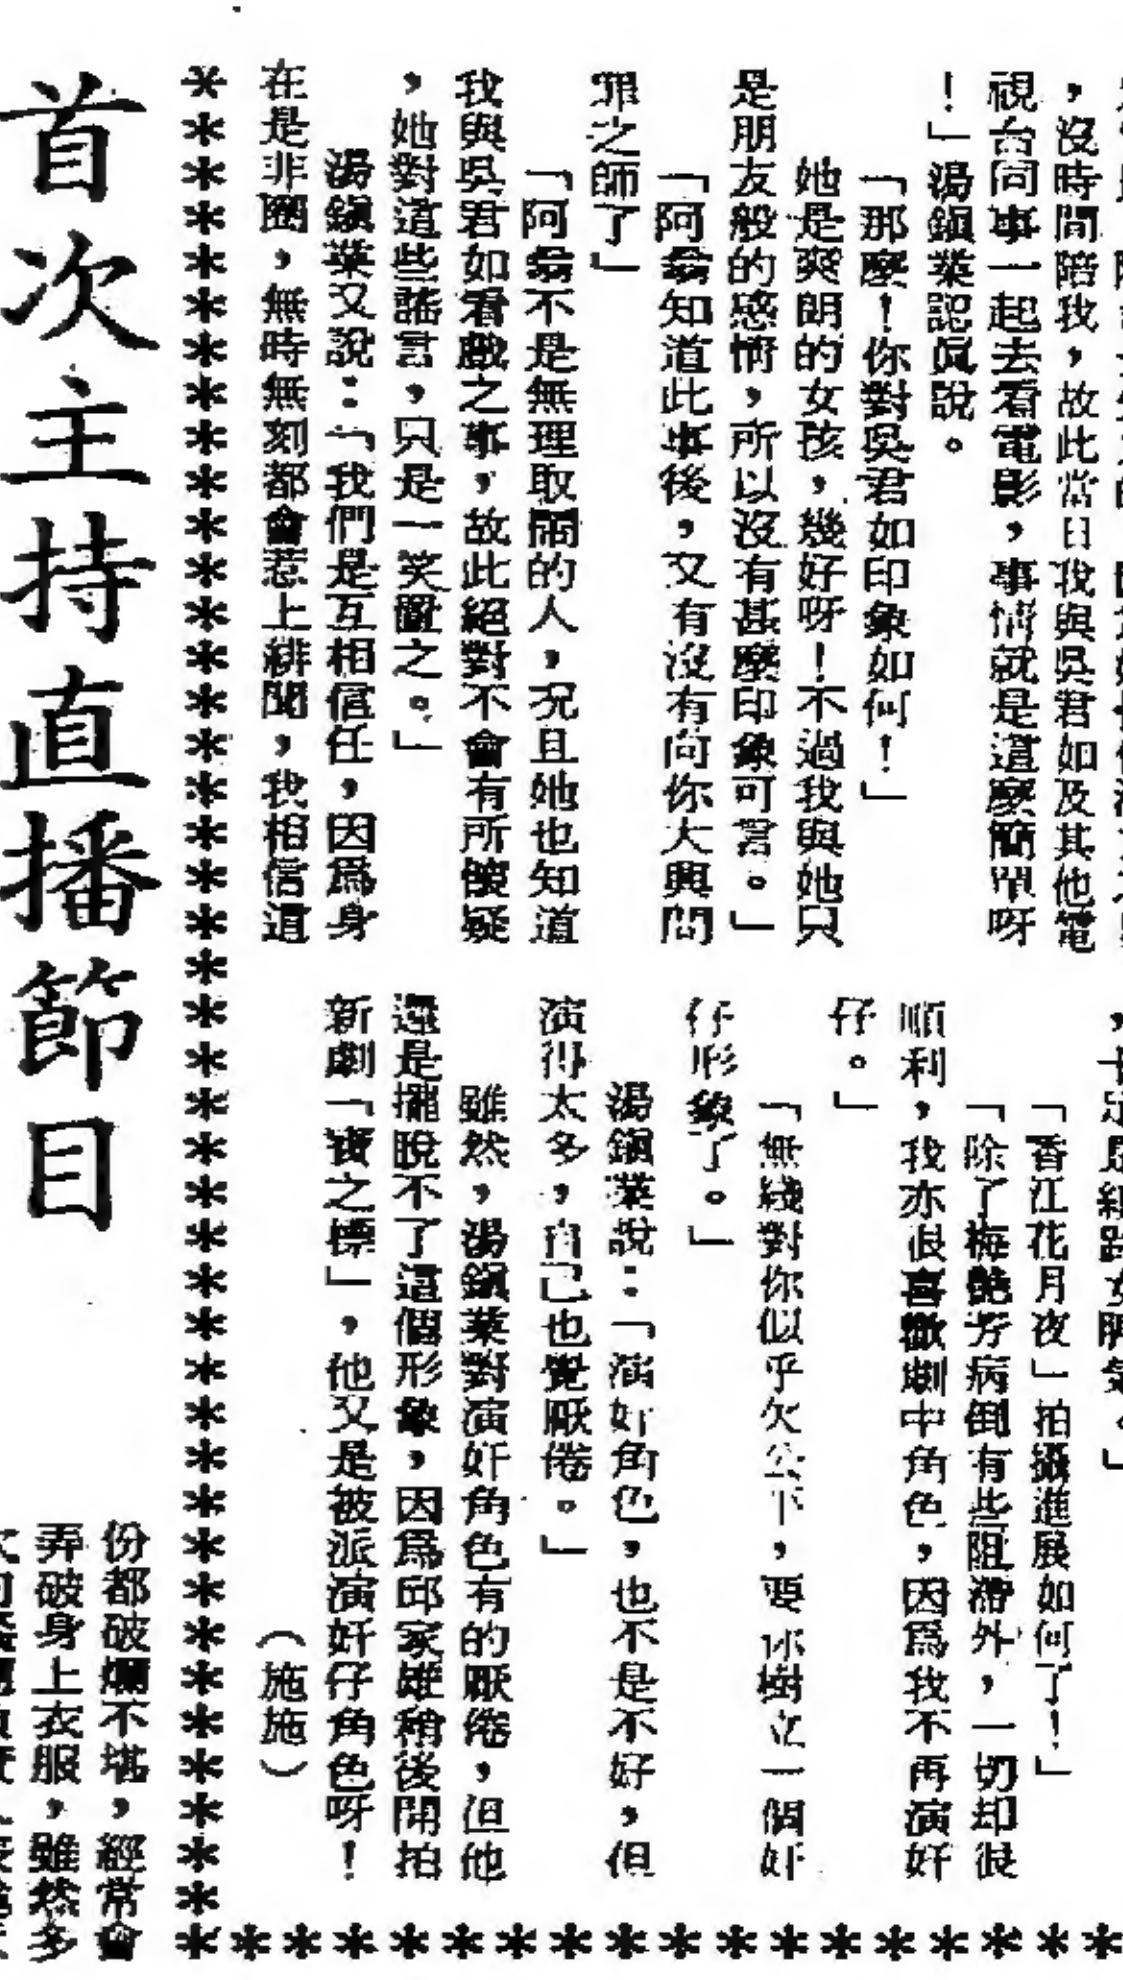 ，沒時間陪我，故此當日我與吳君如及其他電
視台同事一起去看電影，事情就是這麼簡單呀
！」湯鎭業認眞說。
「那麼！你對吳君如印象如何！」
她是爽朗的女孩，幾好呀！不過我與她只
是朋友般的感情，所以沒有甚麼印象可言。」
「阿翁知道此事後，又有沒有向你大興問
罪之師了」
「阿翁不是無理取鬧的人，况且她也知道
我與吳君如看戲之事，故此絕對不會有所懷疑
，她對這些謠言，只是一笑置之。」
湯鎭業又說：「我們是互相信任，因爲身
在是非圈，無時無刻都會惹上緋聞，我相信這
「香江花月夜」拍攝進展如何了！」
「除了梅艷芳病倒有些阻滯外，一切却很
順利，我亦很喜歡劇中角色，因爲我不再演奸
仔。」
「無綫對你似乎欠公平，要你樹立一個奸
仔形象了。」
湯鎭業說：「演奸角色，也不是不好，但
演得太多，自己也覺厭倦。」
雖然，湯鎭業對演奸角色有的厭倦，但他
還是擺脫不了這個形象，因爲邱家雄稍後開拍
新劇「寶之標」，他又是被派演奸仔角色呀！
（施施）
＊＊＊＊＊＊＊＊＊＊＊＊＊＊＊＊＊＊＊＊＊＊＊＊＊＊＊＊＊＊＊＊＊＊＊
＊＊＊＊＊＊＊＊＊＊＊＊＊＊＊＊＊＊
首次主持直播節目
份都破爛不堪，經常會
弄破身上衣服，雖然多